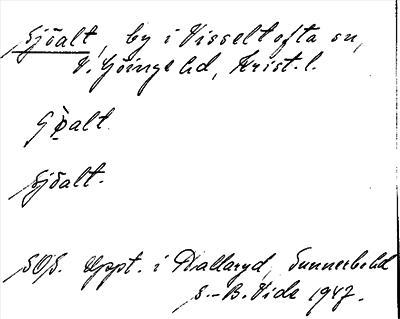 Sjöalt, by i Visseltofta sn,
V. Göinge hd, Krist. l.
Sjöalt.
SOS. Uppt. i Hallaryd, Sunnerbo hd
S.-B. Vide 1947.